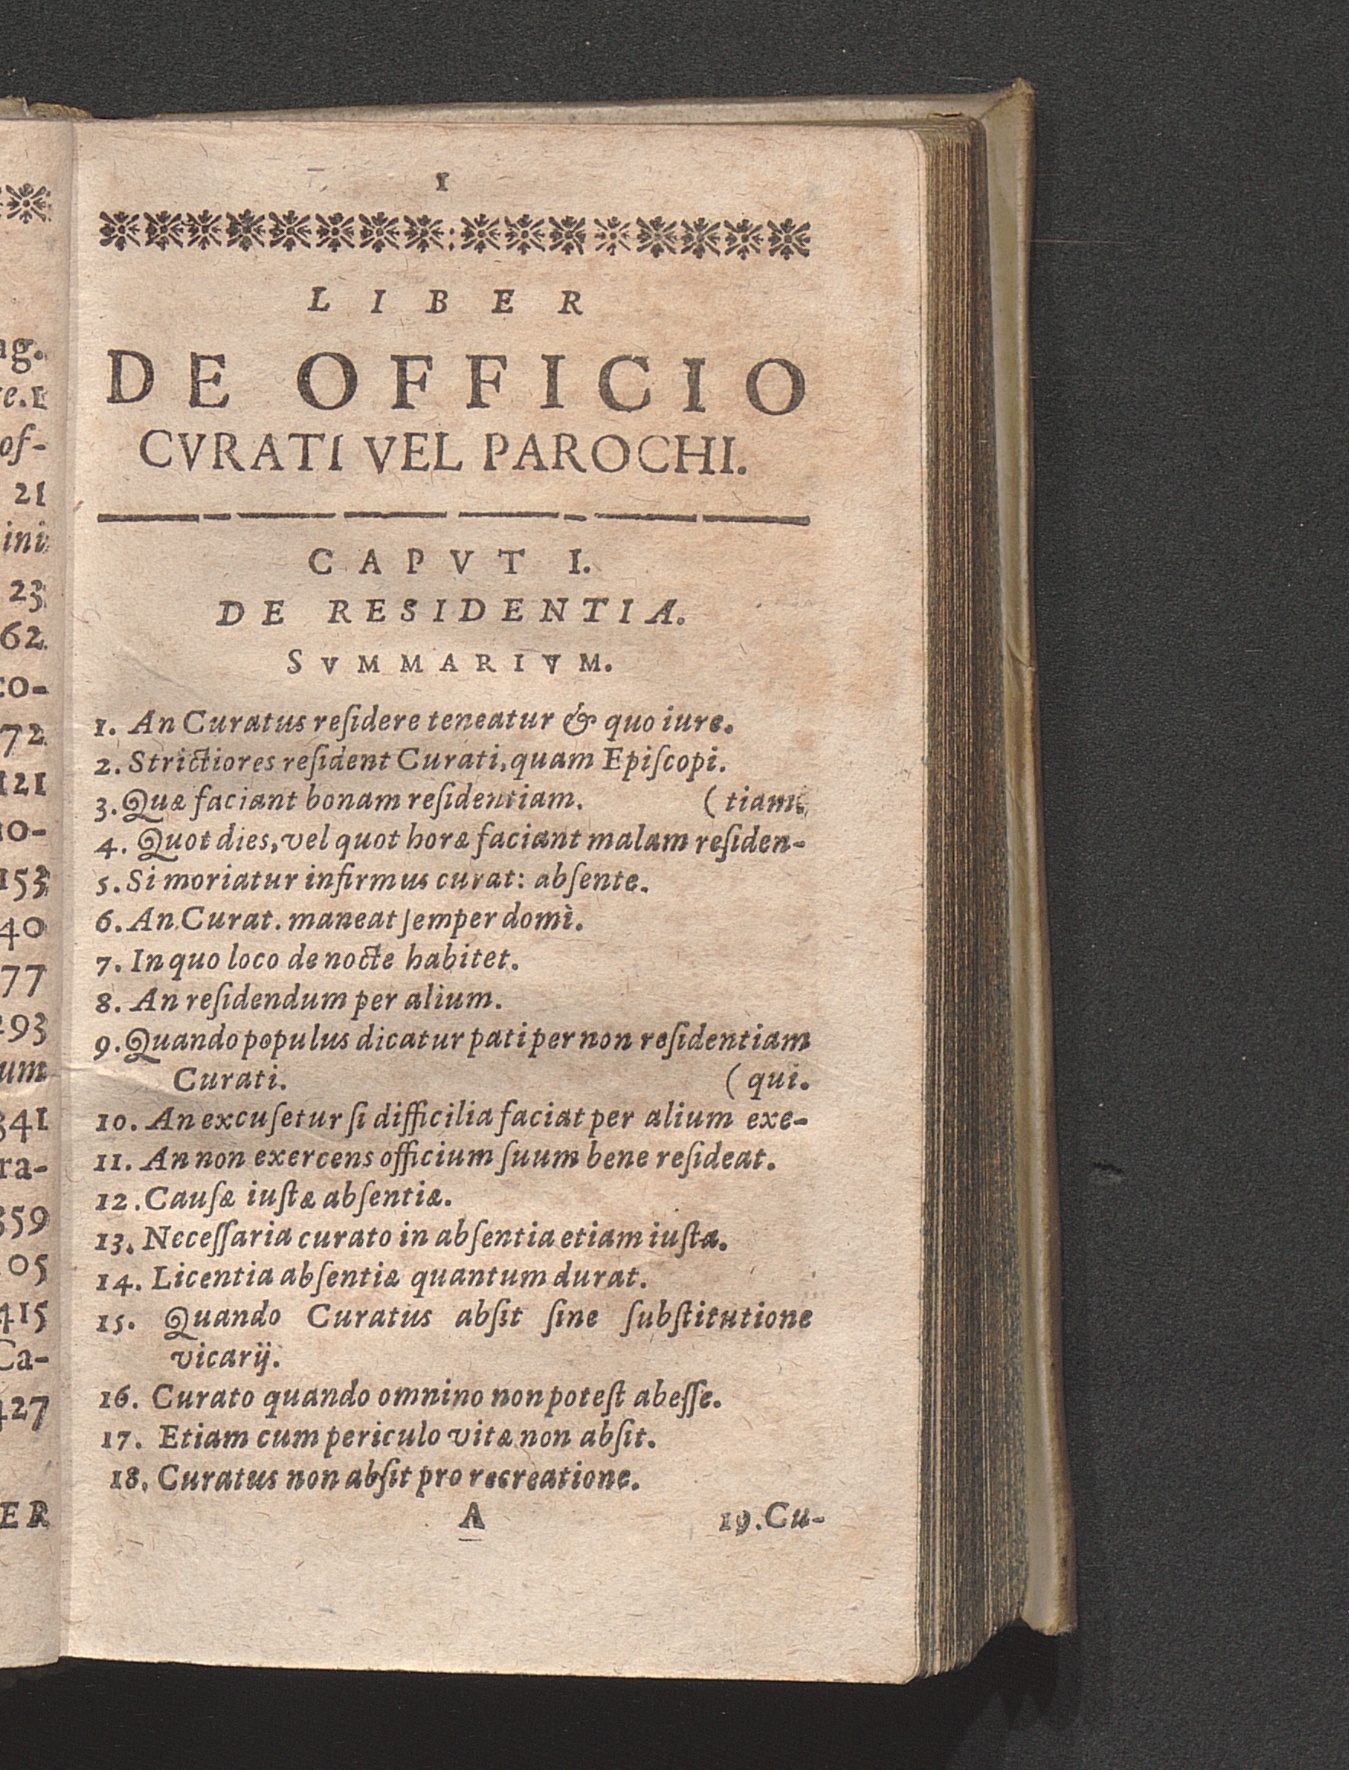 1
LIBER
DE OFFICIO
CVRATI VEL PAROCHI.
CAPVT I.
DE RESIDENTIA.
SVMMARIVM.
1. An Curatus reſidere teneatur & quo iure.
2. Strictiores reſident Curati, quam Epiſcopi.
3. Quæ faciant bonam reſidentiam. (tiam.
4. Quot dies, vel quot horæ faciant malam reſiden-
5. Si moriatur infirmus curat: abſente.
6. An Curat. maneat ſemper domì.
7. In quo loco de nocte habitet.
8. An reſidendum per alium.
9. Quando populus dicatur pati per non reſidentiam
Curati. (qui.
10. An excuſetur ſi difficilia faciat per alium exe-
11. An non exercens officium ſuum bene reſideat.
12. Cauſæ iuſtæ abſentiæ.
13. Neceſſaria curato in abſentia etiam iuſta.
14. Licentia abſentiæ quantum durat.
15. Quando Curatus abſit ſine ſubſtitutione
vicarij.
16. Curato quando omnino non poteſt abeſſe.
17. Etiam cum periculo vitæ non abſit.
18. Curatus non abſit pro recreatione.
A 19. Cu-
ag.
re.1
of-
21
ini
23
62
co-
72
121
no-
153
40
77
293
um
341
ra-
359
05
415
Ca-
427
ER